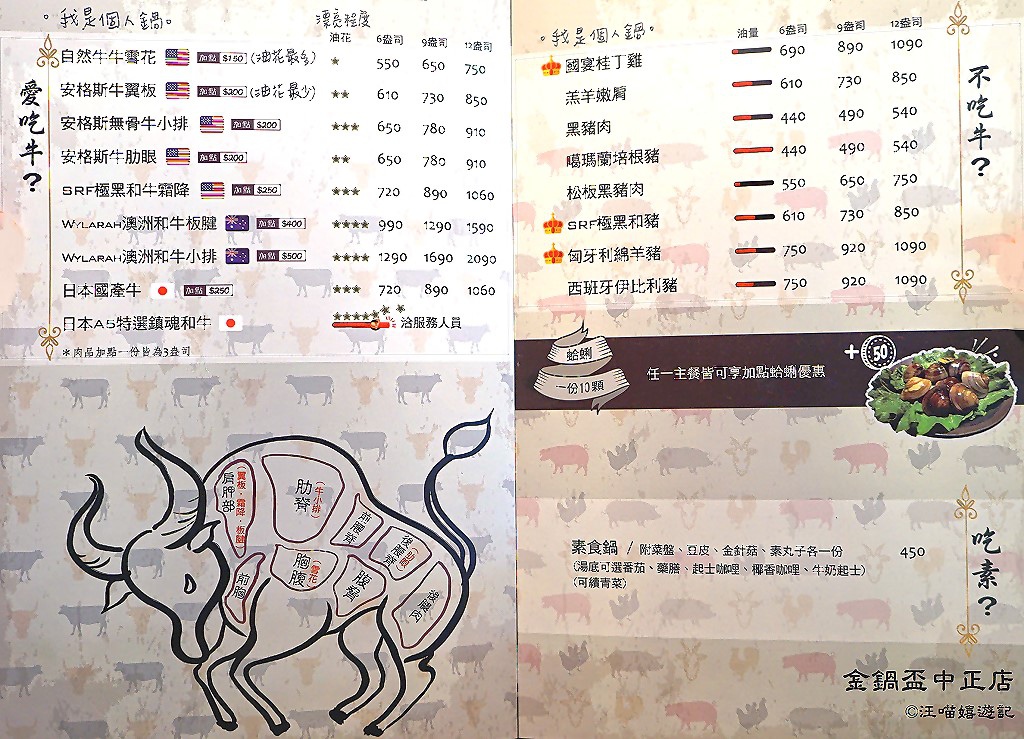 。我是個人鍋。
漂亮程度
油花 6盎司 9盎司 12盎司
愛吃牛?
自然牛牛雪花 加點 $150 (油花最多) ★ 550 650 750
安格斯牛翼板 加點 $200 (油花最少) ★★ 610 730 850
安格斯無骨牛小排 加點 $200 ★★★ 650 780 910
安格斯牛肋眼 加點 $200 ★★ 650 780 910
SRF極黑和牛霜降 加點 $250 ★★★ 720 890 1060
WYLARAH澳洲和牛板腱 加點 $400 ★★★★ 990 1290 1590
WYLARAH澳洲和牛小排 加點 $500 ★★★★ 1290 1690 2090
日本國產牛 加點 $250 ★★★ 720 890 1060
日本A5特選鎮魂和牛 洽服務人員
*肉品加點一份皆為3盎司
肩胛部
(翼板·霜降·板腱)
肋脊
(牛小排)
前腰脊
後腰脊
胸腹
(雪花)
腹脅
前胸
後腿肉
。我是個人鍋。
油量 6盎司 9盎司 12盎司
不吃牛?
國宴桂丁雞 690 890 1090
羔羊嫩肩 610 730 850
黑豬肉 440 490 540
噶瑪蘭培根豬 440 490 540
松板黑豬肉 550 650 750
SRF極黑和豬 610 730 850
匈牙利綿羊豬 750 920 1090
西班牙伊比利豬 750 920 1090
蛤蜊
一份10顆
任一主餐皆可享加點蛤蜊優惠
+50
吃素?
素食鍋 / 附菜盤、豆皮、金針菇、素丸子各一份 450
(湯底可選番茄、藥膳、起士咖哩、椰香咖哩、牛奶起士)
(可續青菜)
金鍋盃中正店
©汪喵嬉遊記